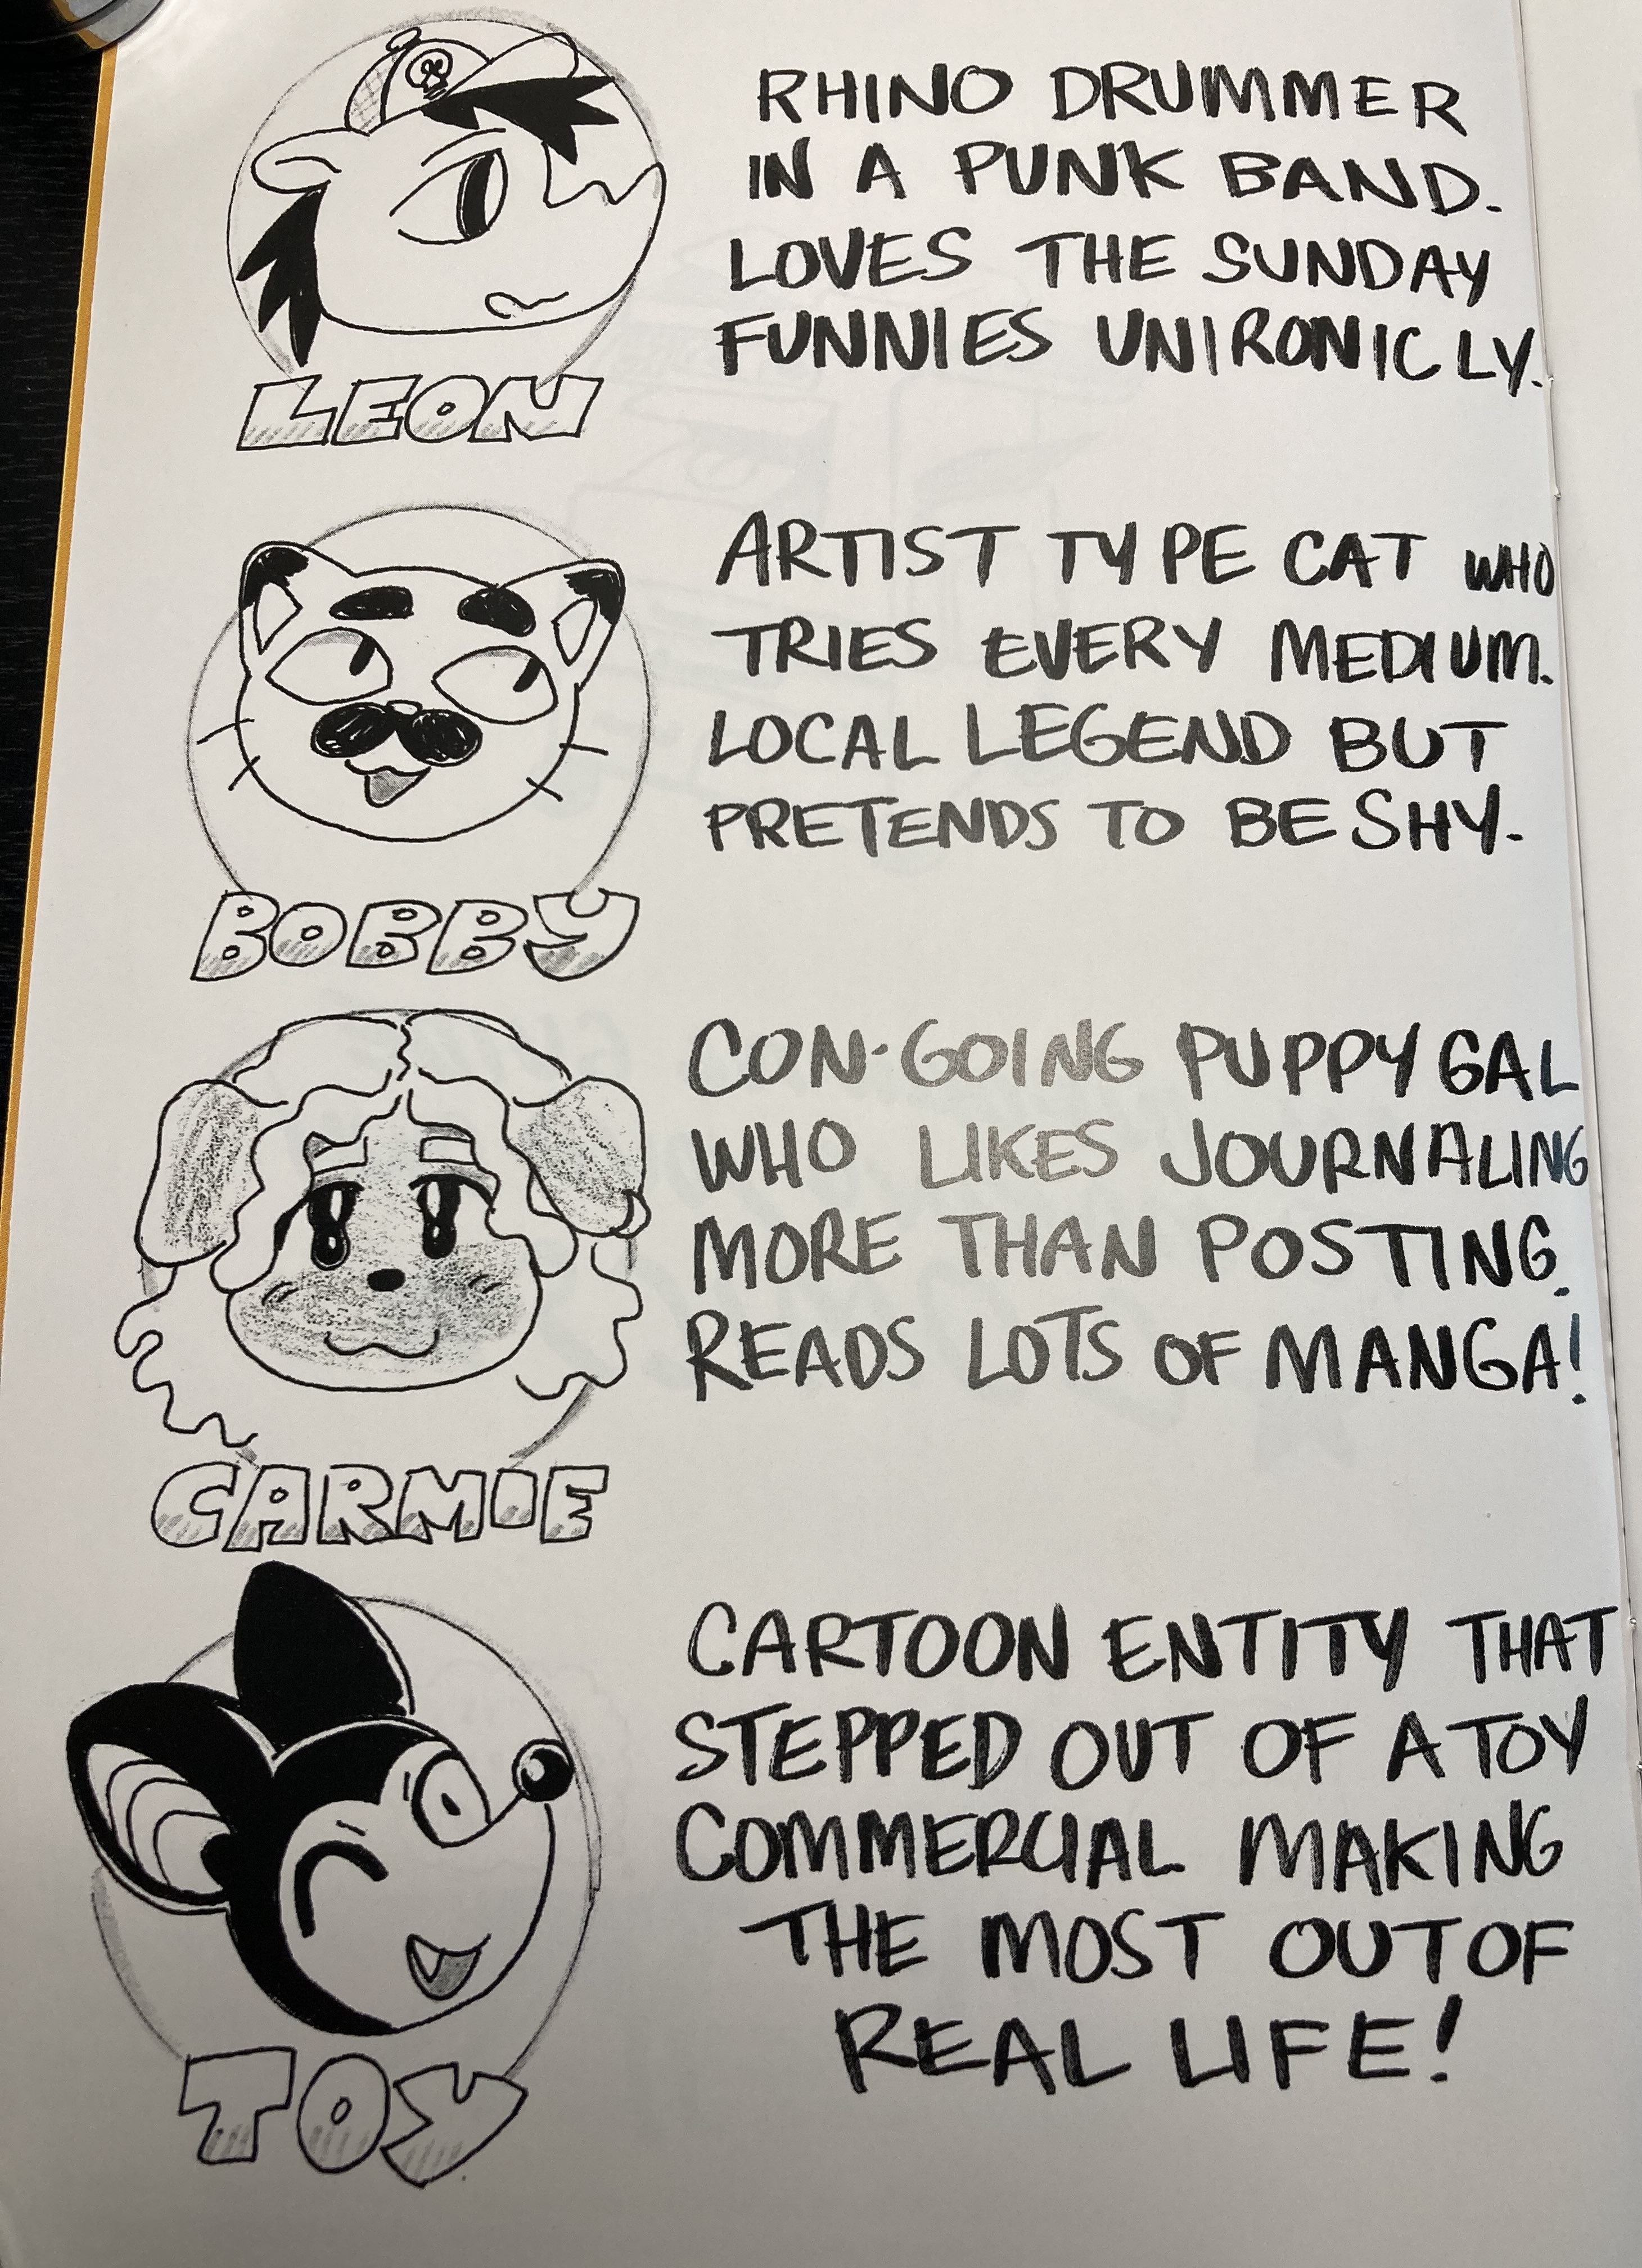 RHINO DRUMMER
IN A PUNK BAND.
LOVES THE SUNDAY
FUNNIES UNIRONICLY.
LEON
ARTIST TYPE CAT WHO
TRIES EVERY MEDIUM.
LOCAL LEGEND BUT
PRETENDS TO BE SHY.
BOBBY
CON-GOING PUPPY GAL
WHO LIKES JOURNALING
MORE THAN POSTING.
READS LOTS OF MANGA!
CARMIE
CARTOON ENTITY THAT
STEPPED OUT OF A TOY
COMMERCIAL MAKING
THE MOST OUT OF
REAL LIFE!
TOY